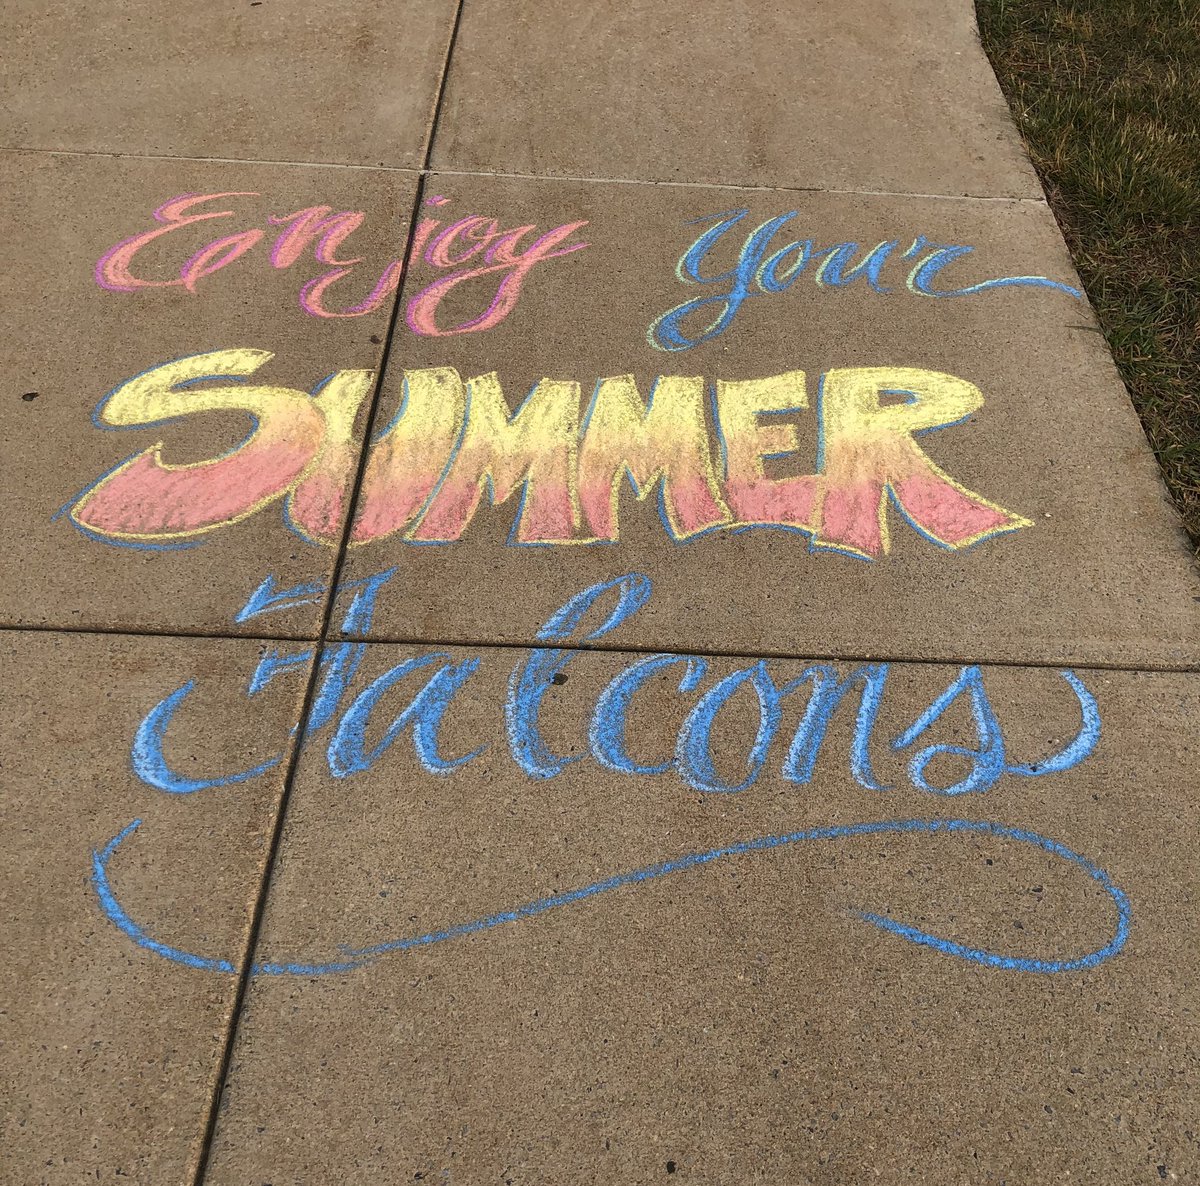 Enjoy Your
SUMMER
Falcons